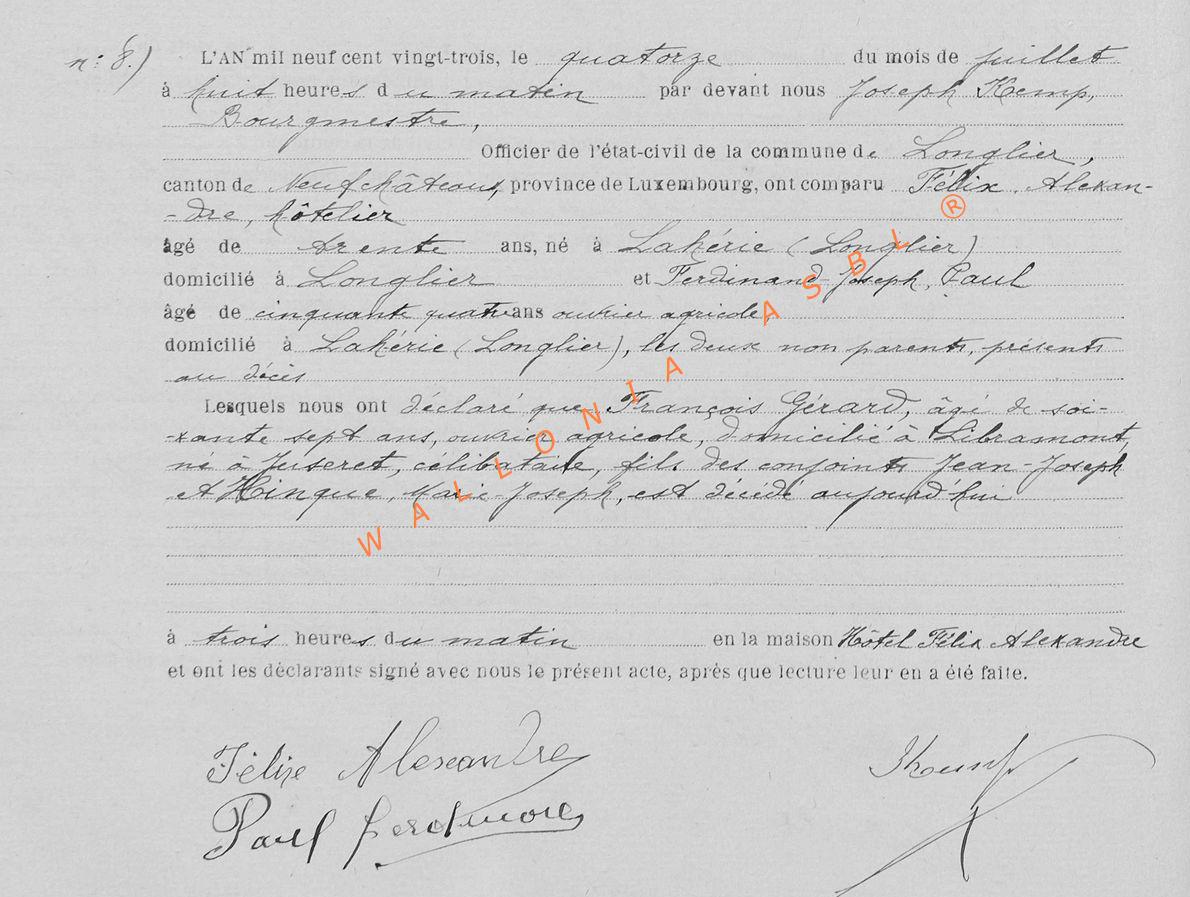 n: 8.) L'AN mil neuf cent vingt-trois, le quatorze du mois de juillet
à huit heures du matin par devant nous Joseph Kemp,
Bourgmestre,
Officier de l'état-civil de la commune de Longlier,
canton de Neufchâteau, province de Luxembourg, ont comparu Félix Alexan-
-dre, hôtelier
âgé de trente ans, né à Lahérie (Longlier)
domicilié à Longlier et Ferdinand Joseph, Paul
âgé de cinquante quatre ans ouvrier agricole,
domicilié à Lahérie (Longlier), les deux non parents, présents
au décès
Lesquels nous ont déclaré que François Gérard, âgé de soi-
-xante sept ans, ouvrier agricole, domicilié à Libramont,
né à Juseret, célibataire, fils des conjoints Jean-Joseph
et Hinque, Marie-Joseph, est décédé aujourd'hui
à trois heures du matin en la maison Hôtel Félix Alexandre
et ont les déclarants signé avec nous le présent acte, après que lecture leur en a été faite.
Félix Alexandre
Paul
WALLONIA ASBL ®